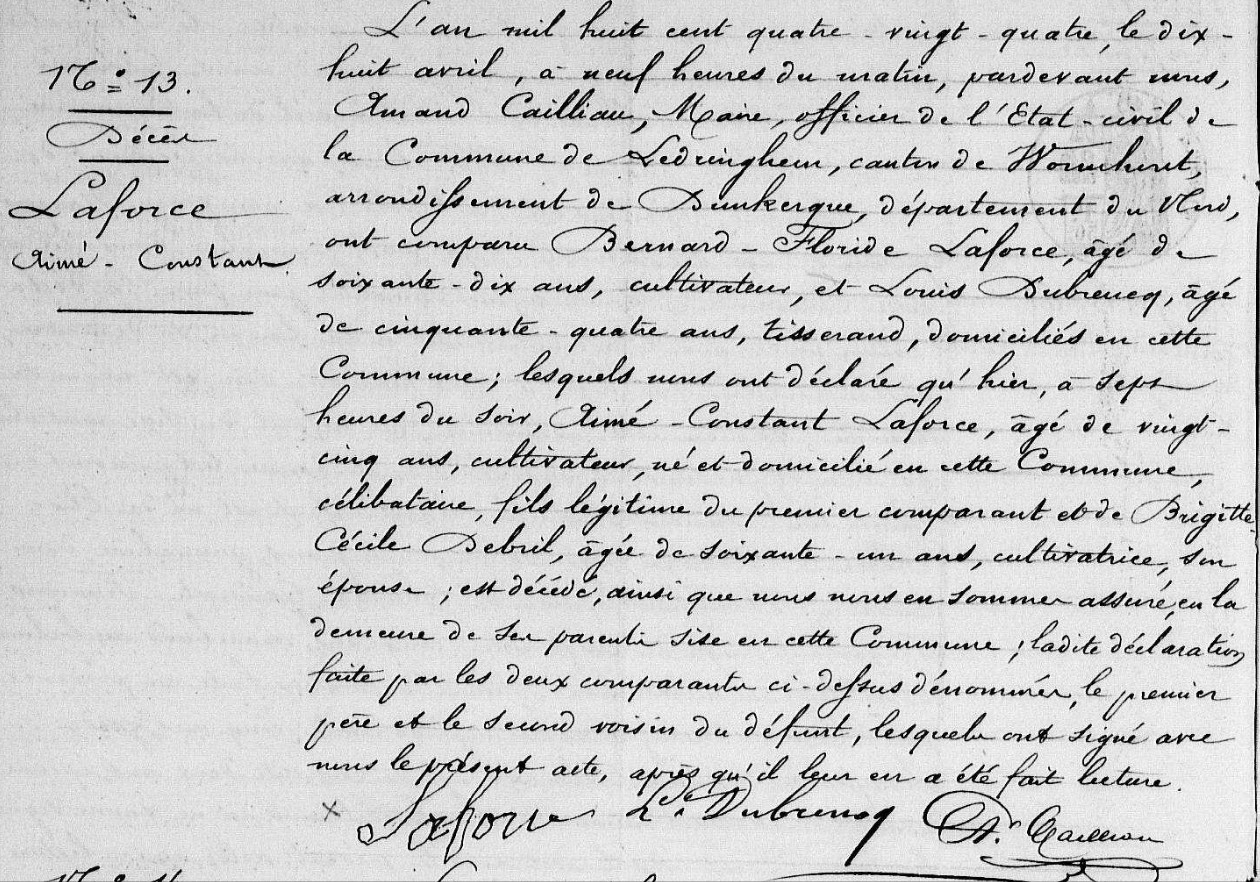 N.º 13.
Décès
Laforce
Aimé - Constant.
L'an mil huit cent quatre - vingt - quatre, le dix -
huit avril, à neuf heures du matin, pardevant nous,
Amand Cailliau, Maire, officier de l'Etat - civil de
la Commune de Ledringhem, canton de Wormhout,
arrondissement de Dunkerque, département du Nord,
ont comparu Bernard - Floride Laforce, âgé de
soixante - dix ans, cultivateur, et Louis Dubrucq, âgé
de cinquante - quatre ans, tisserand, domiciliés en cette
Commune ; lesquels nous ont déclaré qu'hier, à sept
heures du soir, Aimé - Constant Laforce, âgé de vingt -
cinq ans, cultivateur, né et domicilié en cette Commune,
célibataire, fils légitime du premier comparant et de Brigitte
Cécile Debril, âgée de soixante - un ans, cultivatrice, son
épouse ; est décédé, ainsi que nous nous en sommes assuré, en la
demeure de ses parents sise en cette Commune ; ladite déclaration
faite par les deux comparants ci - dessus dénommés, le premier
père et le second voisin du défunt, lesquels ont signé avec
nous le présent acte, après qu'il leur en a été fait lecture.
x Laforce Ls. Dubrucq Ad. Cailliau